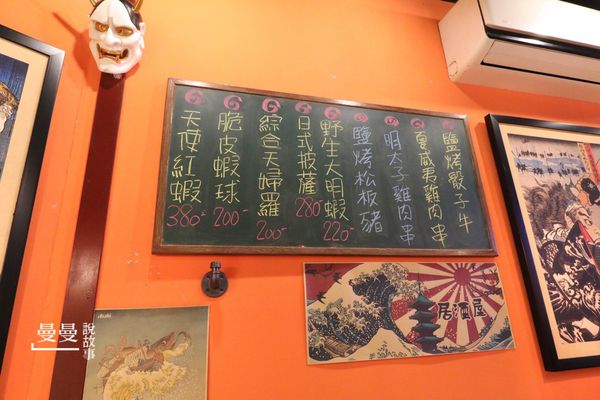 鹽烤骰子牛
夏威夷雞肉串
明太子雞肉串
鹽烤松板豬
野生大明蝦
220-
日式披薩
280-
綜合天婦羅
200-
脆皮蝦球
200-
天使紅蝦
380-
居酒屋
曼曼
說故事
Asahi